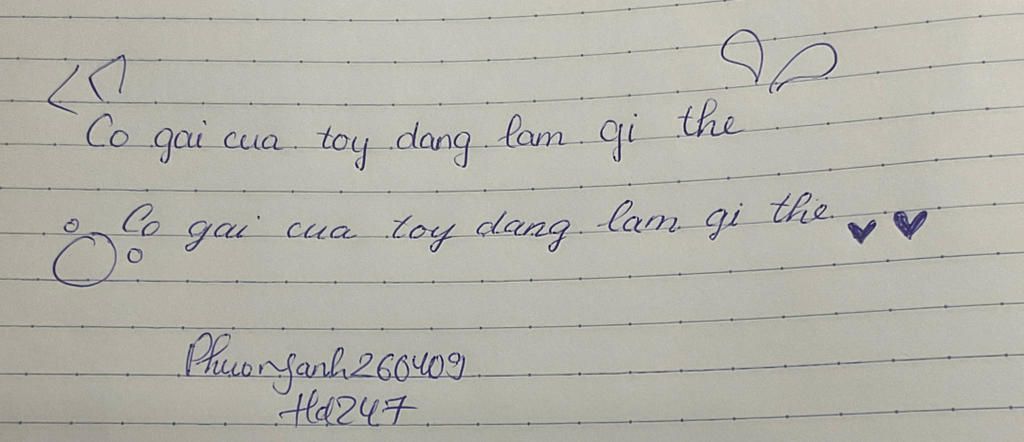 Co gai cua toy dang lam gi the
Co gai cua toy dang lam gi the
Phuonganh260409
Hd247